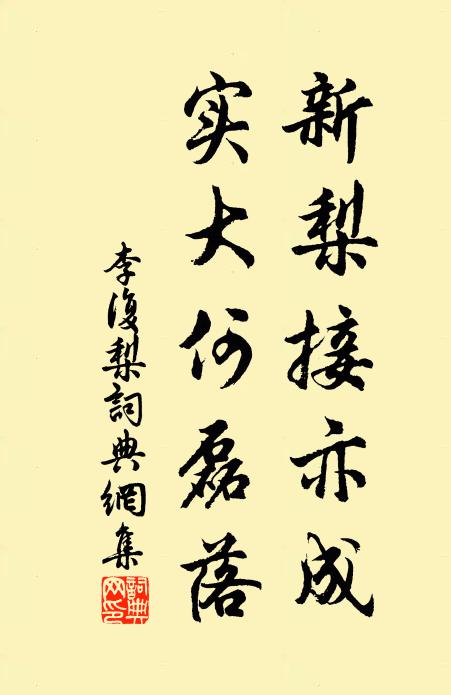 新梨接亦成
实大何磊落
李復梨詞典網集
詞典网印